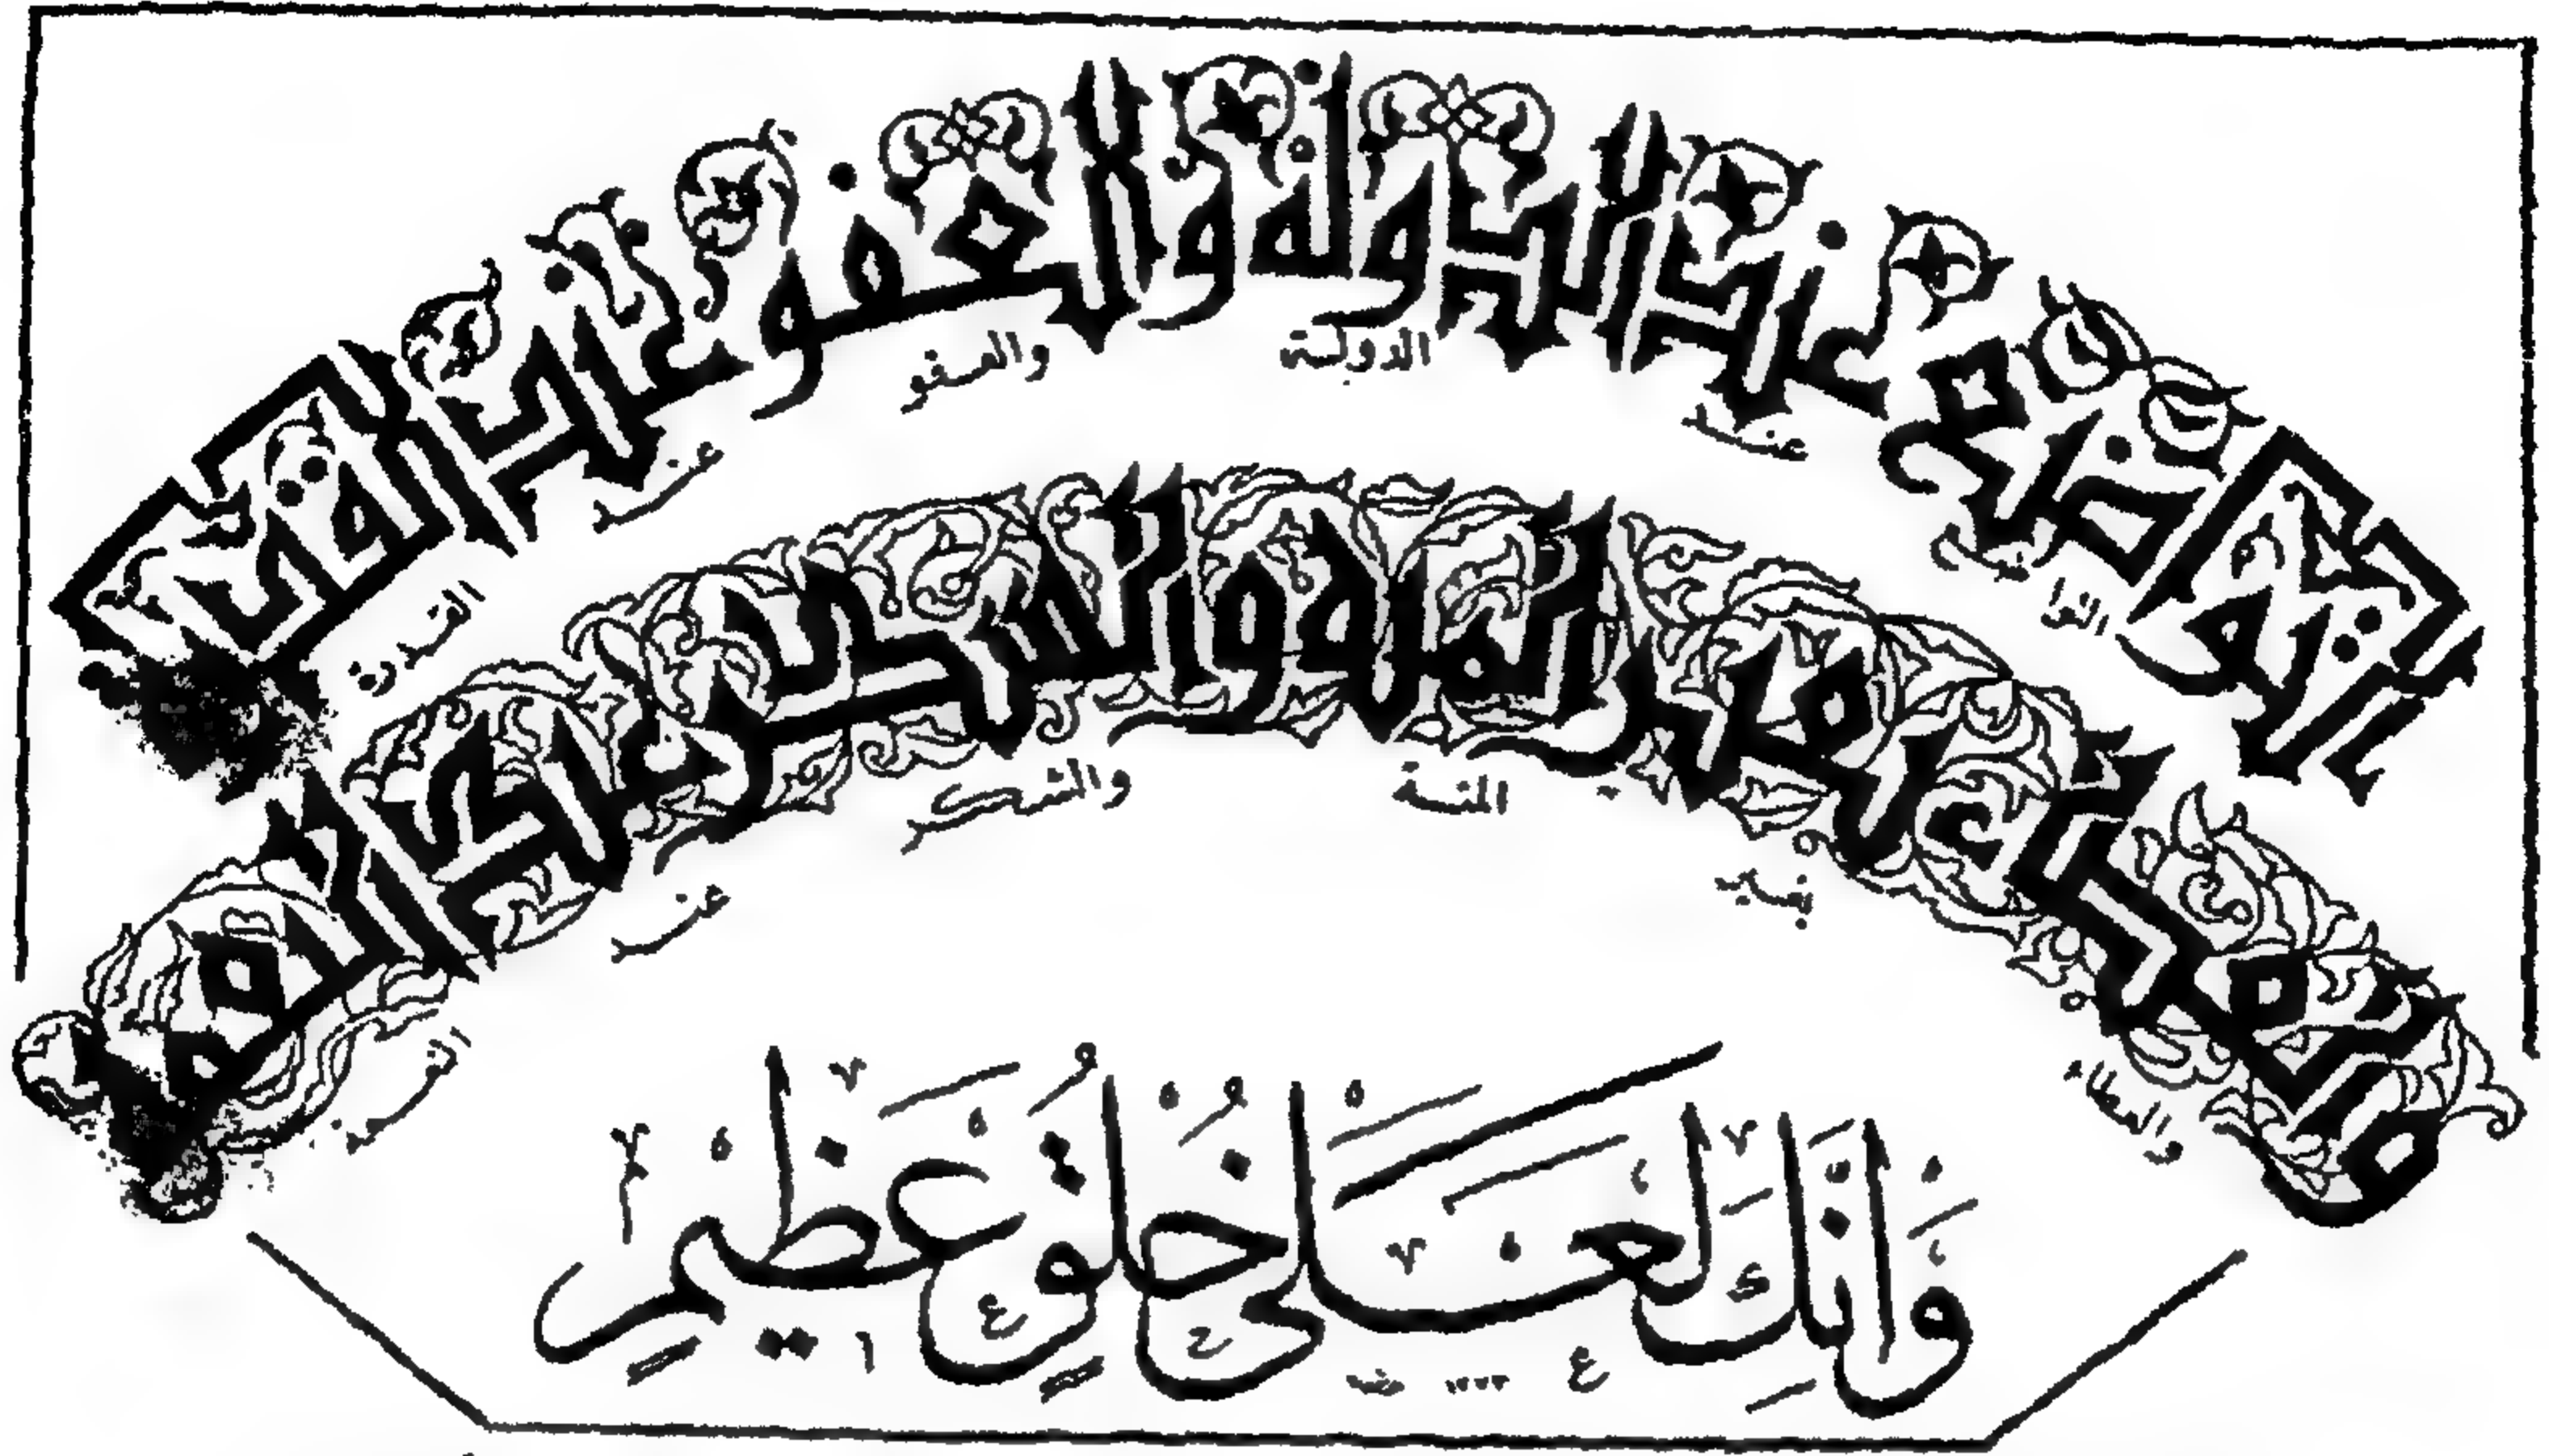 التواضع عند الدولة والعفو عند القدرة
التواضع عند الدولة والعفو عند القدرة
والعطاء بغير المنة والشكر عند
والعطاء بغير المنة والشكر عند
وَإِنَّكَ لَعَلَىٰ خُلُقٍ عَظِيمٍ